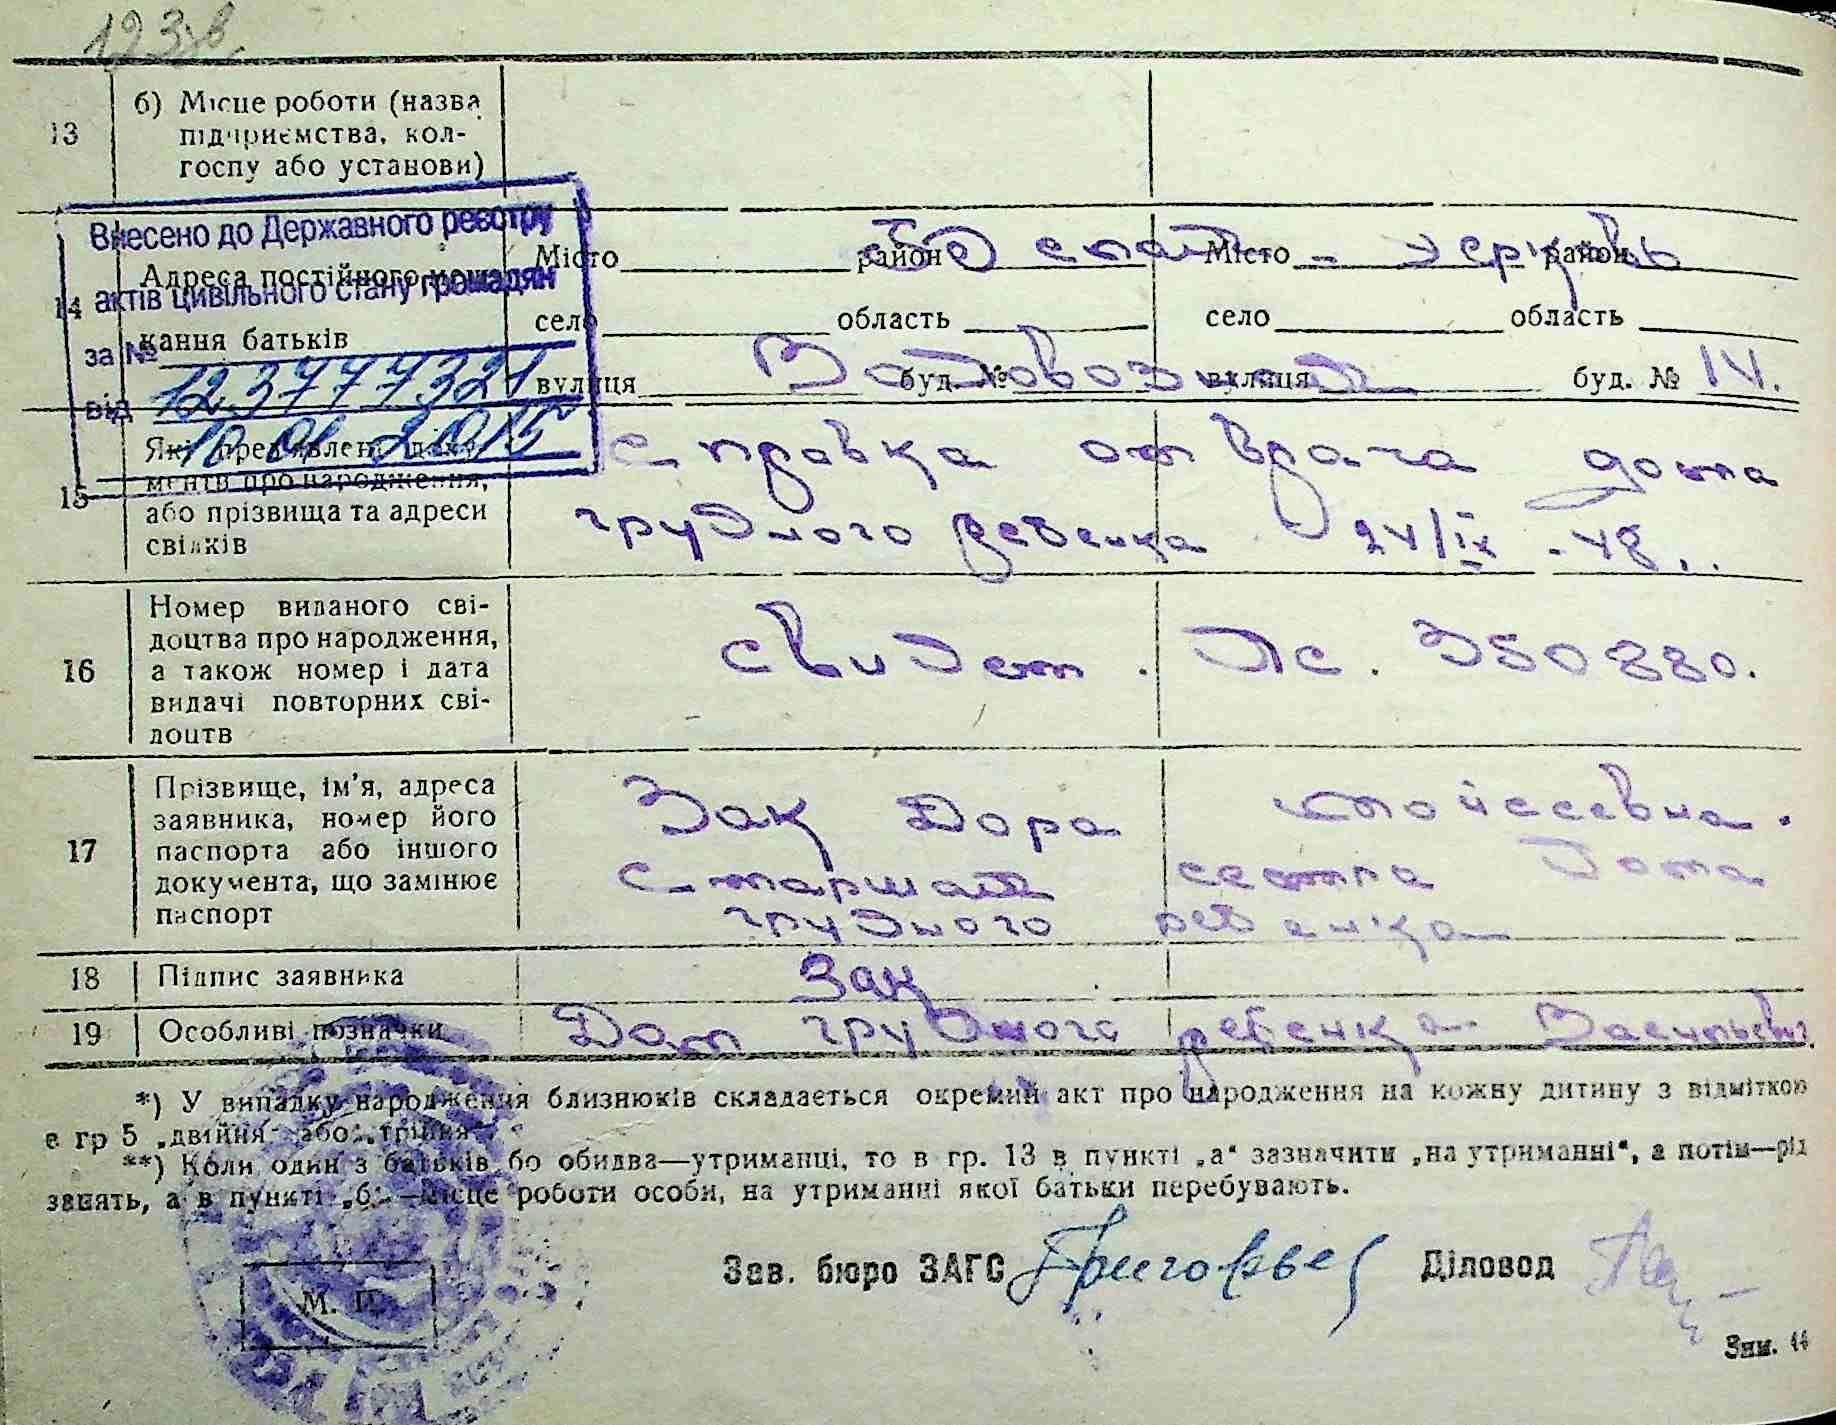 123зв.
13 б) Місце роботи (назва
підприємства, кол-
госпу або установи)
Внесено до Державного реєстру
актів цивільного стану громадян
за № 12377732
від 10 01 2015
14 Адреса постійного мешкання батьків
Місто район Місто район
Церковь
село область село область
вулиця буд. № вулиця буд. № 14.
Водовозная
15 Які пред'явлені документи про народження,
або прізвища та адреси
свідків
справка от врача дома
грудного ребенка 24/IX-48..
16 Номер виданого сві-
доцтва про народження,
а також номер і дата
видачі повторних сві-
доцтв
свидет. Яс. 350880.
17 Прізвище, ім'я, адреса
заявника, номер його
паспорта або іншого
документа, що замінює
паспорт
Зак Дора Мойсеевна.
Старшая сестра дома
грудного ребенка
18 Підпис заявника Зак
19 Особливі позначки Дом грудного ребенка
*) У випадку народження близнюків складається окремий акт про народження на кожну дитину з відміткою
в гр 5 „двійня" або „трійня".
**) Коли один з батьків бо обидва—утриманці, то в гр. 13 в пункті „а" зазначити „на утриманні", а потім—рід
занять, а в пункті „б"—місце роботи особи, на утриманні якої батьки перебувають.
Зав. бюро ЗАГС Діловод
М. П.
Зам.